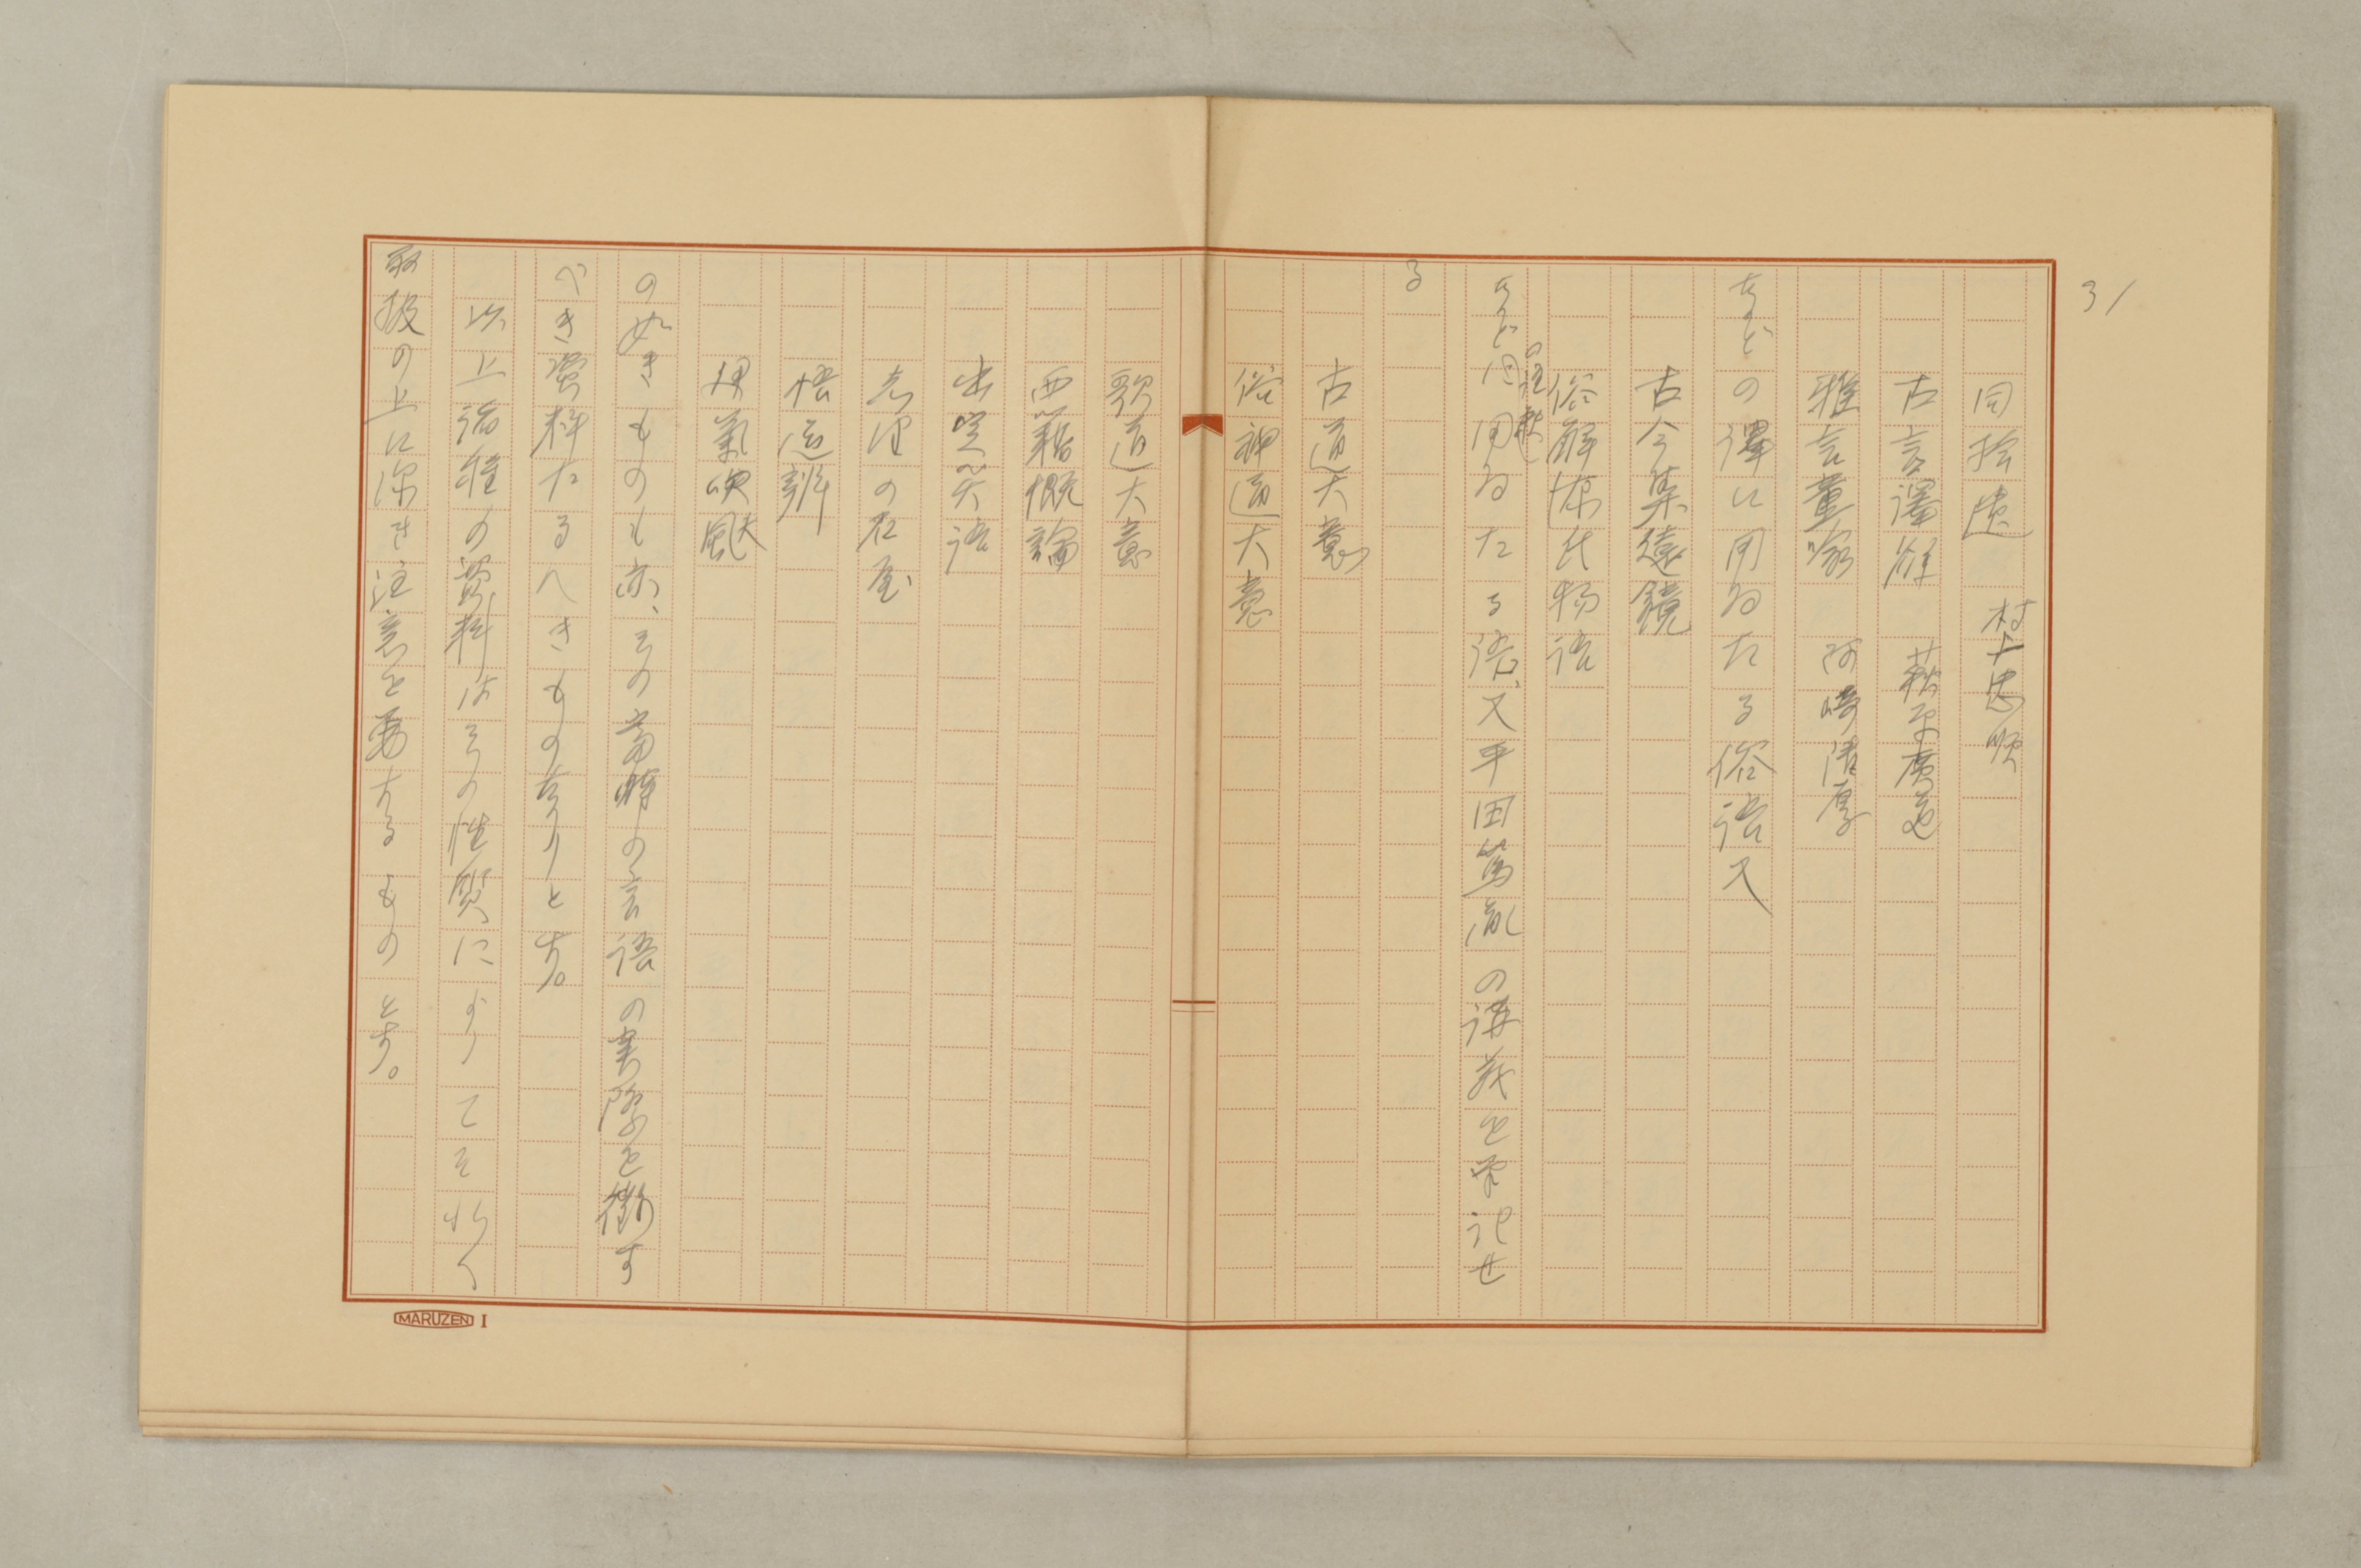 31
同拾遺　村上忠順
古言譯解　萩原廣道
雅言童喩　河崎清厚
などの譯に用ゐたる俗語又
古今集遠鏡
俗解源氏物語
など の註釈に 用ゐたる語、又平田篤胤の講義を筆記せ
る
古道大意
俗神道大意
歌道大意
西籍概論
出定笑語
志都の石屋
悟道辨
伊吹颫
の如きものも亦、その当時の言語の実際を徴す
べき資料たるへきものなりとす。
以上諸種の資料はその性質によりてそれ〱
取扱の上に深き注意を要するものとす。
MARUZEN I